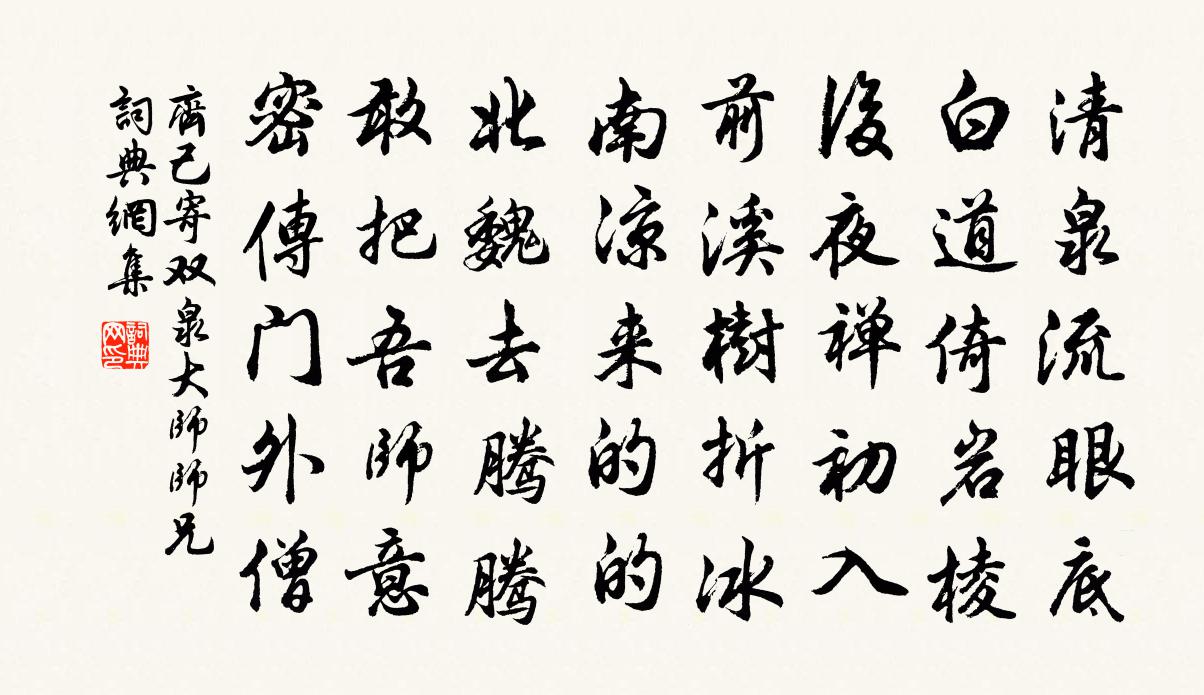 清泉流眼底
白道倚岩棱
後夜禅初入
前溪樹折冰
南凉来的的
北魏去腾腾
敢把吾師意
密傳门外僧
齊己寄双泉大師師兄
詞典網集
詞典网印